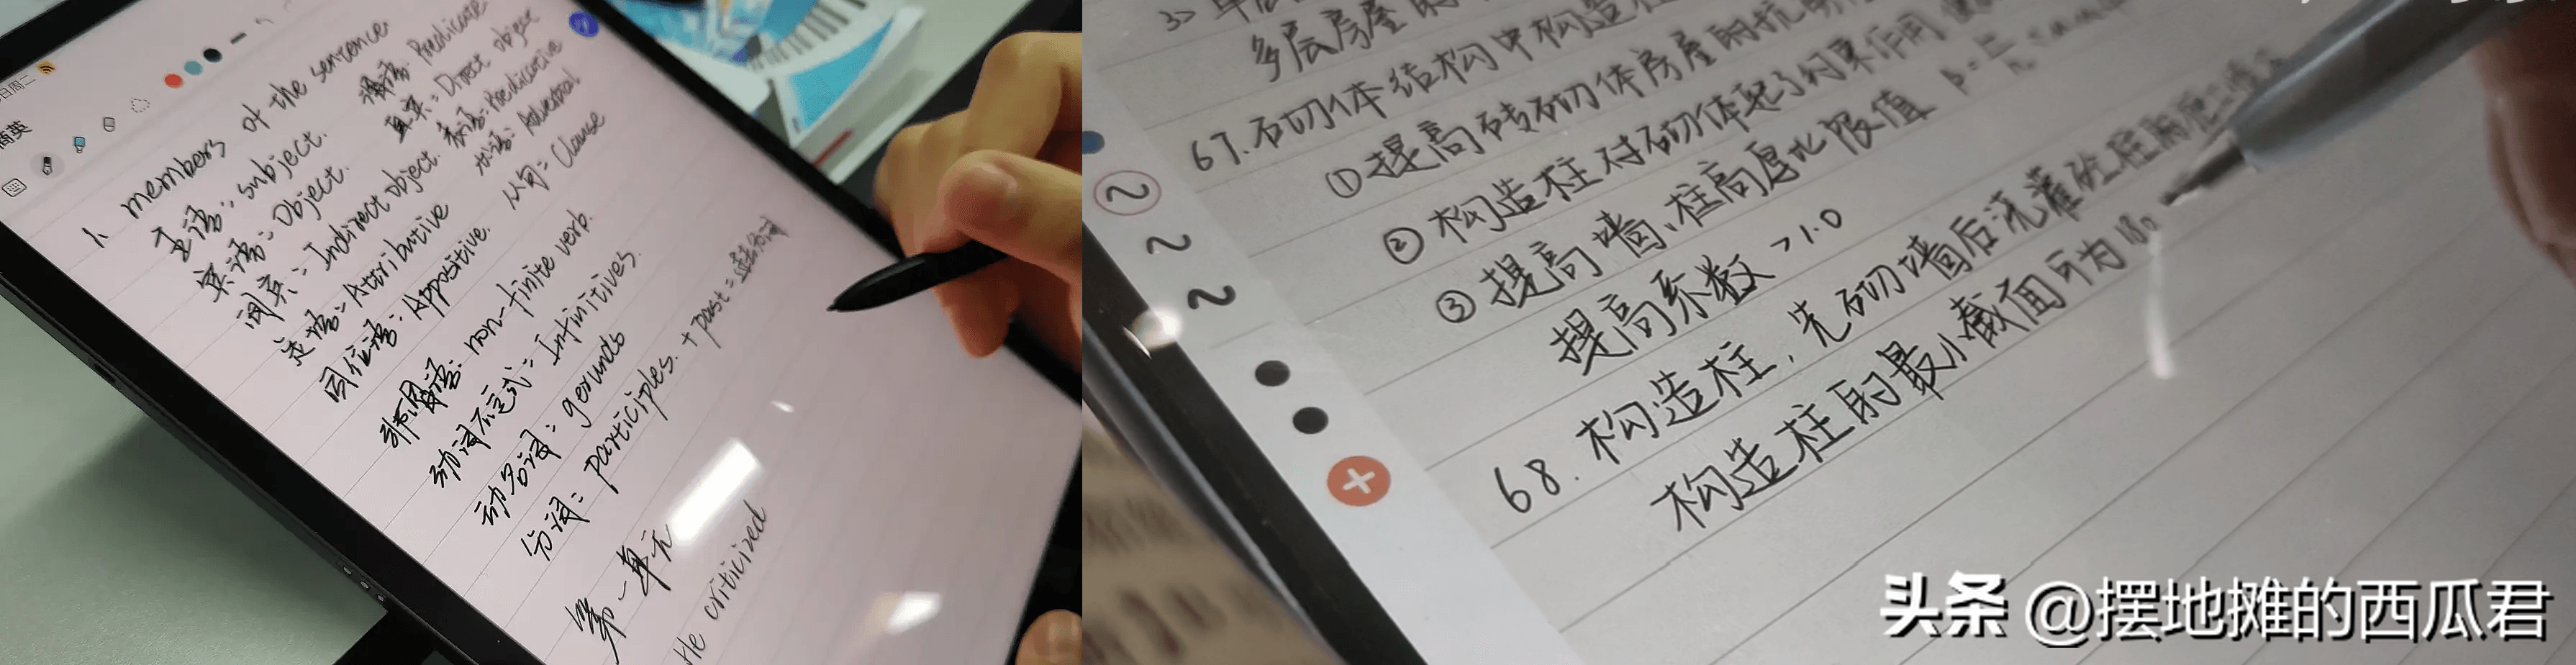 日周二
商英
1. members of the sentence.
主语: subject. 谓语: Predicate
宾语: Object. 直宾: Direct object
间宾: Indirect object. 表语: Predicative
定语: Attributive 状语: Adverbial
同位语: Appositive. 从句: Clause
非谓语: non-finite verb.
动词不定式: Infinitives.
动名词: gerunds
分词: participles. + past = 过去分词
第一单元
He criticized
多层房屋的
67. 砌体结构中构造柱
①提高砖砌体房屋的抗
②构造柱对砌体起了约束作用
③提高墙、柱高厚比限值
提高系数 >1.0
68. 构造柱, 先砌墙后浇灌砼
构造柱的最小截面可为180
头条 @摆地摊的西瓜君